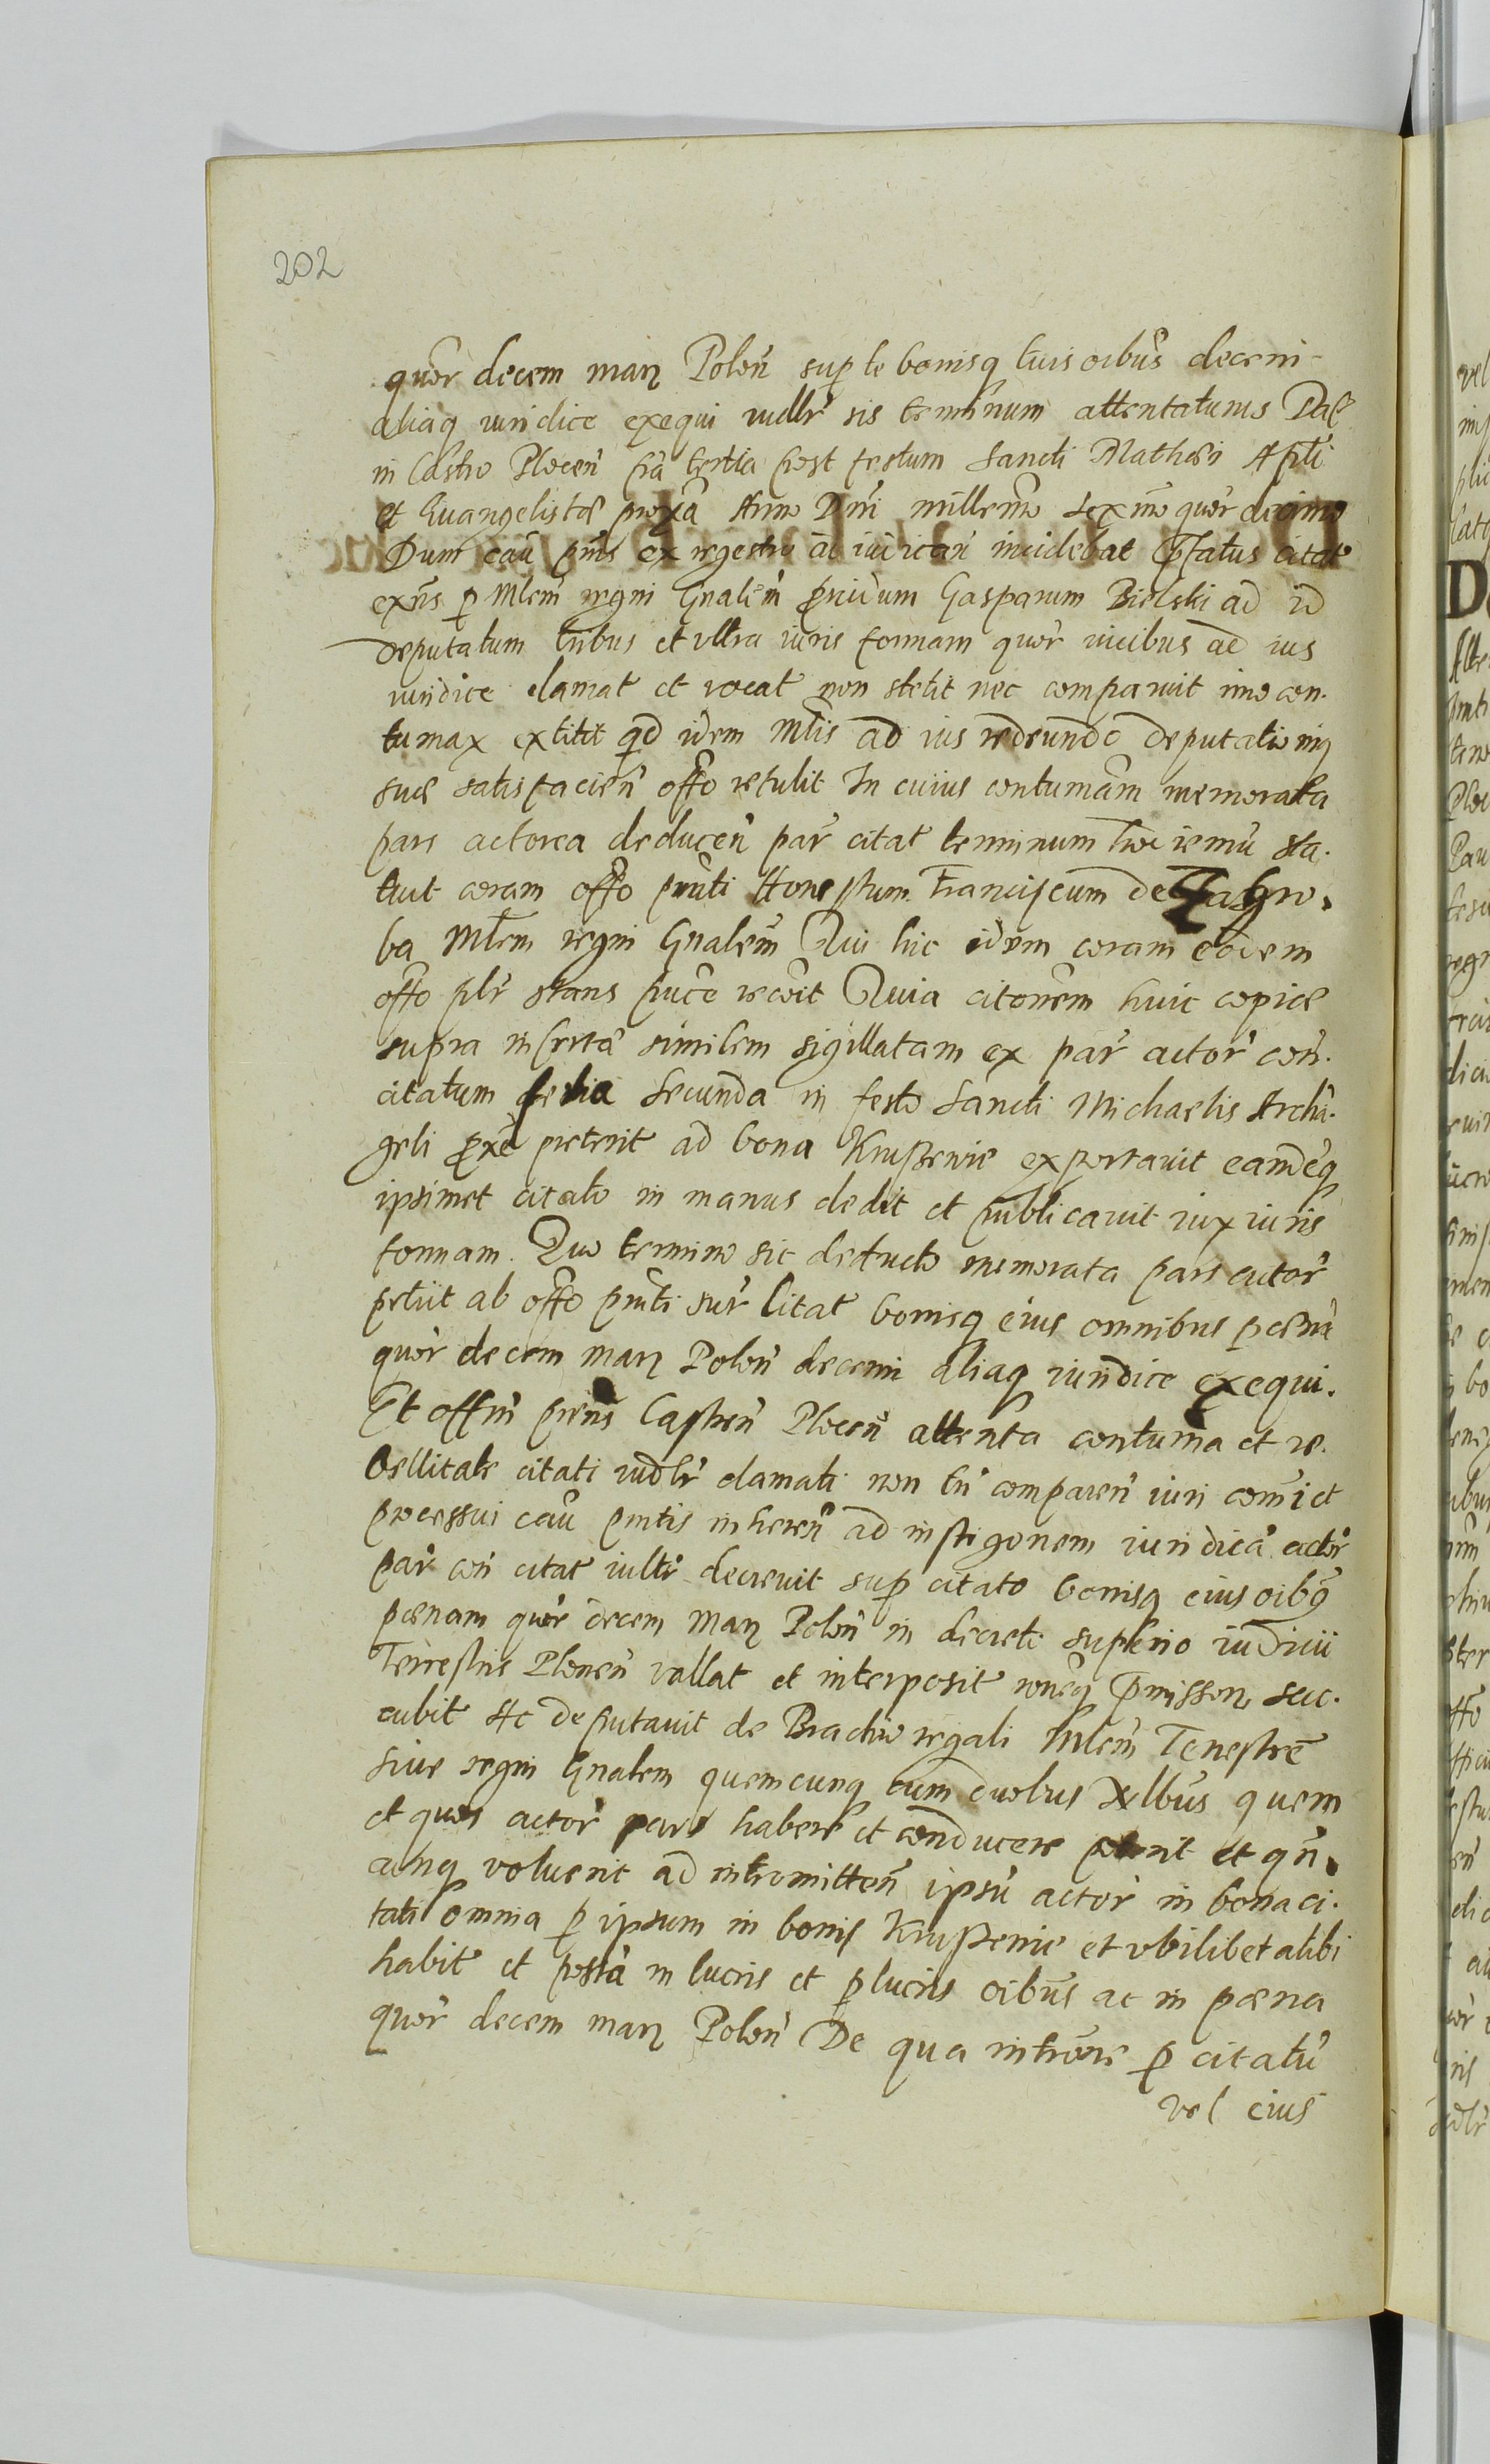 202
quor decem marz Polon sup te bonisq tuis oibus decerni
aliaq iuridice exequi iudlr sis terminum attentaturus Dat
in Castro Plocen fia tertia post festum Sancti Mathei Apli
et Euangelistæ proxa Anno Dni millemo sexmo quor decimo
Dum cau pns ex regestro ad iudican incidebat Citatus citat
exns p Mlem regni Gnalem prouidum Gasparum Bielski ad id
deputatum tribus et vltra iuris formam quor vicibus ad ius
iuridice clamat et vocat non stetit nec comparuit imo con-
tumax extitit qd idem Mlis ad ius redeundo deputationiq
suæ satisfacien offo retulit In cuius contumam memorata
pars actorea deducen par citat terminum hodiernu sta-
tuit coram offo pnti Honestum Franciscum de Zagro-
ba Mlem regni Gnalem Qui hic idem coram eodem
offo plr stans puce recoit Quia citonem huic copiæ
supra inscrtæ similem sigillatam ex par actor con
citatum feria Secunda in festo Sancti Michaelis Archa-
geli proxe preterit ad bona Krusszenie exportauit eandeq
ipsimet citato in manus dedit et publicauit iux iuris
formam. Quo termino sic deducto memorata pars actor
petiit ab offo pnti sur Citat bonisq eius omnibus pœna
quor decem marz Polon decerni aliaq iuridice exequi.
Et offm prens Castren Plocen attenta contuma et re-
bellitate citati iudlr clamati non tn comparen iuri comi et
processui cau pntis inheren ad instigonem iuridica actor
par con citat iudlr decreuit sup citato bonisq eius oibq
pœnam quor decem marz Polon in decreti suplerio iudicii
Terrestris Plonen vallat et interposit roneq pmissorz suc-
cubit Ac deputauit de Brachio regali Mlem Terrestre
siue regni Gnalem quemcunq cum duobus Nlbus quem
et quos actor pars habere et conducere poterit et qn-
cunq voluerit ad intromitten ipsu actor in bona ci-
tati omnia p ipsum in bonis Krusszenie et vbilibet alibi
habit et possa in lucris et plucris oibus ac in pœna
quor decem marz Polon De qua introre p citatu
vel eius